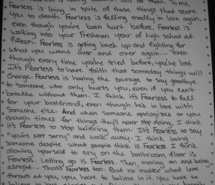 Fearless is living in spite of those things that scare
you to death. Fearless is falling madly in love again,
even though you've been hurt before. Fearless is
walking into your freshman year of high school at
fifteen. Fearless is getting back up and fighting for
what you want over and over again... even
though every time you've tried before, you've lost.
It's Fearless to have faith that someday things will
change. Fearless is having the courage to say goodbye
to someone who only hurts you, even if you can't
breathe without them. I think it's Fearless to fall
for your best friend, even though he's in love with
someone else. And when someone apologizes to you
enough times for things they'll never stop doing, I think
it's Fearless to stop believing them. It's Fearless to say
"you're NOT sorry" and walk away. I think loving
someone despite what people think is Fearless. I think
allowing yourself to cry on the bathroom floor is
Fearless. Letting go is Fearless. Then, moving on and being
alright... That's Fearless too. But no matter what love
throws at you, you have to believe in it. You have to